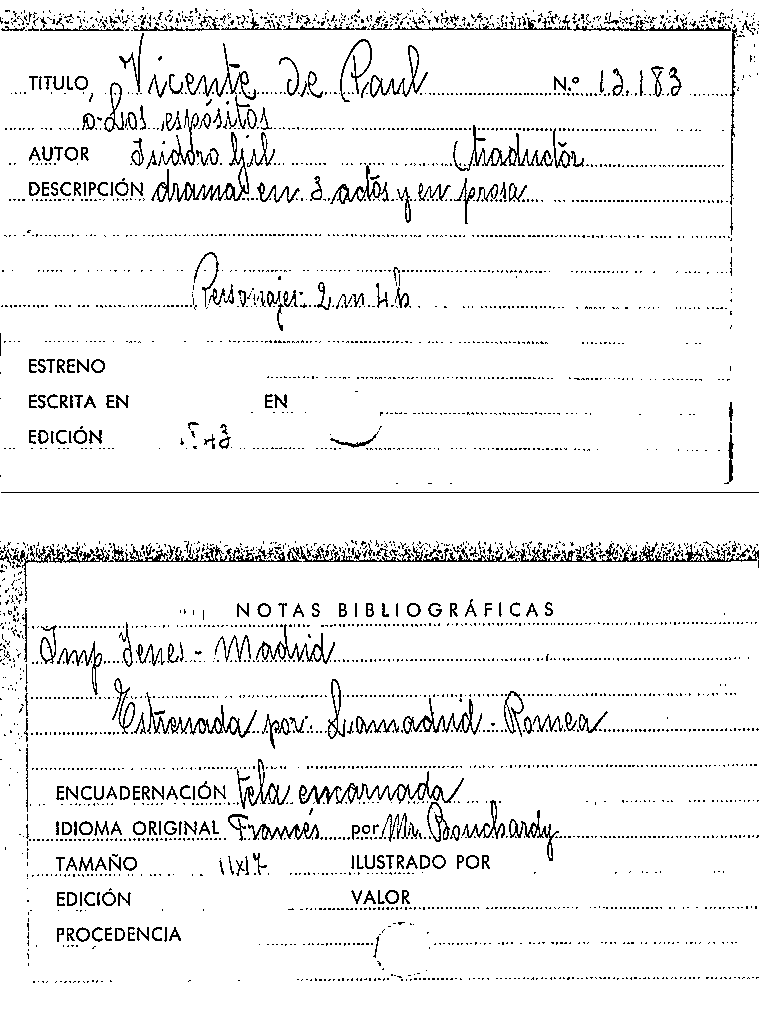 TITULO Vicente de Paul N.º 13.183
o Los espósitos
AUTOR Isidoro Gil (traductor
DESCRIPCIÓN drama en 3 actos y en prosa
Personajes: 2 m 4 h
ESTRENO
ESCRITA EN EN
EDICIÓN
NOTAS BIBLIOGRÁFICAS
Imp Yenes - Madrid
Estrenada por: Lamadrid - Romea
ENCUADERNACIÓN tela encarnada
IDIOMA ORIGINAL Francés por Mr. Bouchardy
TAMAÑO 11x17 ILUSTRADO POR
EDICIÓN VALOR
PROCEDENCIA